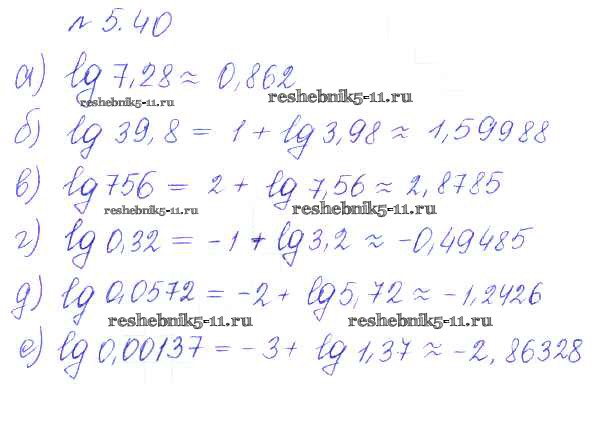 № 5.40
а) lg 7,28 ≈ 0,862
reshebnik5-11.ru reshebnik5-11.ru
б) lg 39,8 = 1 + lg 3,98 ≈ 1,59988
в) lg 756 = 2 + lg 7,56 ≈ 2,8785
reshebnik5-11.ru reshebnik5-11.ru
г) lg 0,32 = -1 + lg 3,2 ≈ -0,49485
д) lg 0,0572 = -2 + lg 5,72 ≈ -1,2426
reshebnik5-11.ru reshebnik5-11.ru
е) lg 0,00137 = -3 + lg 1,37 ≈ -2,86328